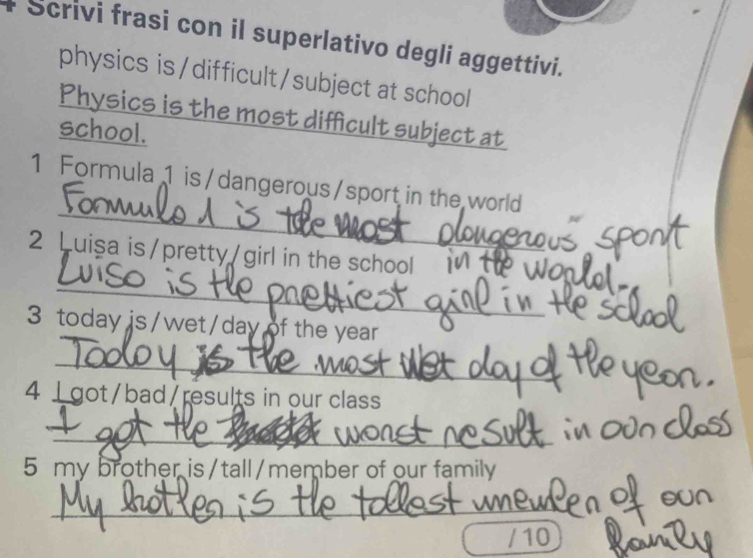 4 Scrivi frasi con il superlativo degli aggettivi.
physics is/difficult/subject at school
Physics is the most difficult subject at
school.
1 Formula 1 is/dangerous/sport in the world
Formula 1 is the most dangerous sport
in the world.
2 Luisa is/pretty/girl in the school
Luisa is the prettiest girl in the school
3 today is/wet/day of the year
Today is the most wet day of the year.
4 I got/bad/results in our class
I got the worst result in our class
5 my brother is/tall/member of our family
My brother is the tallest member of our
family
/10